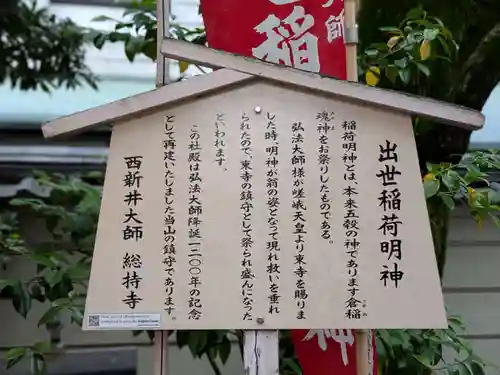 稲
師
神
出世稲荷明神
稲荷明神とは、本来五穀の神であります倉稲
魂神をお祭りしたものである。
弘法大師様が嵯峨天皇より東寺を賜りま
した時、明神が翁の姿となって現れ救いを垂
られたので、東寺の鎮守として祭られ盛んになった
といわれます。
この社殿は弘法大師降誕一二〇〇年の記念
として再建いたしました当山の鎮守であります。
西新井大師 總持寺